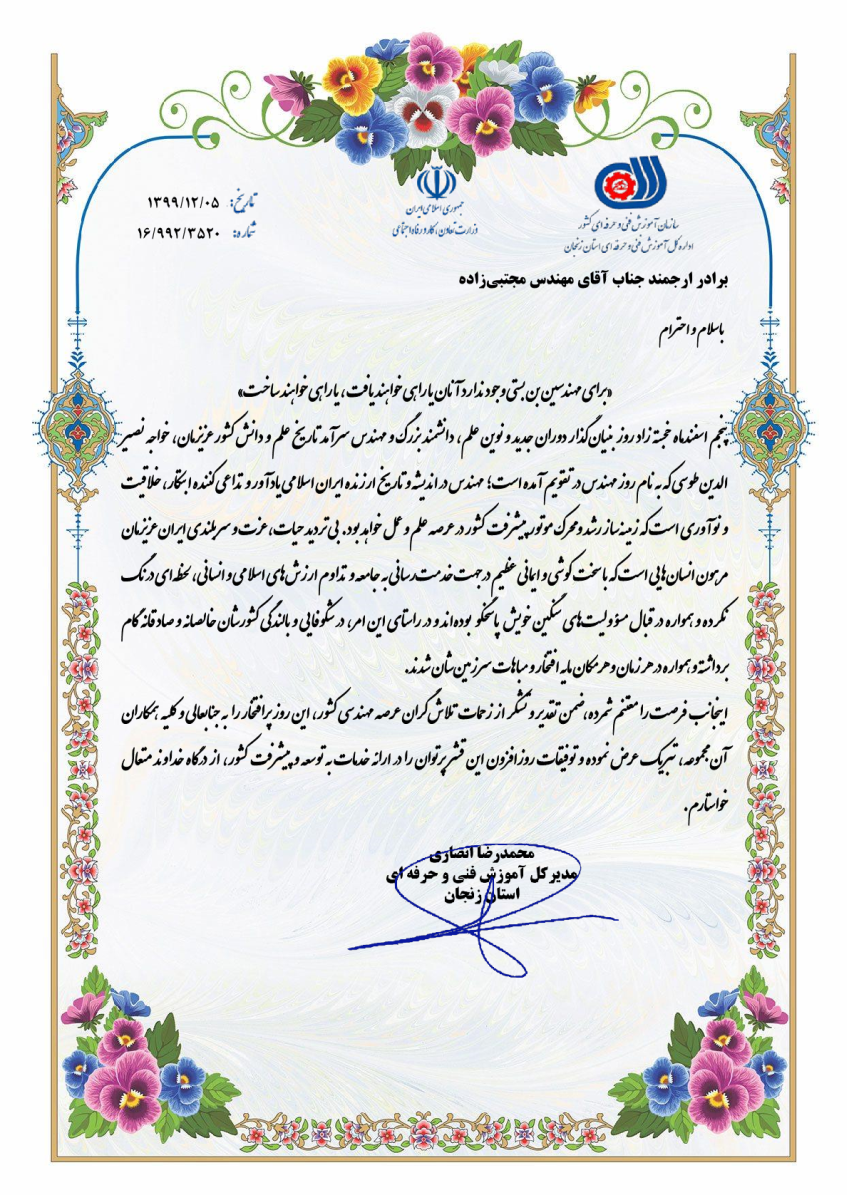 سازمان آموزش فنی و حرفه ای کشور
اداره کل آموزش فنی و حرفه ای استان زنجان
جمهوری اسلامی ایران
وزارت تعاون، کار و رفاه اجتماعی
تاریخ: ۱۳۹۹/۱۲/۰۵
شماره: ۱۶/۹۹۲/۳۵۲۰
برادر ارجمند جناب آقای مهندس مجتبی‌زاده
باسلام و احترام
«برای مهندسین بن بستی وجود ندارد آنان یا راهی خواهند یافت، یا راهی خواهند ساخت»
پنجم اسفندماه خجسته زاد روز بنیان گذار دوران جدید و نوین علم، دانشمند بزرگ و مهندس سرآمد تاریخ علم و دانش کشور عزیزمان، خواجه نصیر
الدین طوسی که به نام روز مهندس در تقویم آمده است؛ مهندس در اندیشه و تاریخ ارزنده ایران اسلامی یادآور و تداعی کننده ابتکار، خلاقیت
و نوآوری است که زمینه ساز رشد و محرک موتور پیشرفت کشور در عرصه علم و عمل خواهد بود. بی تردید حیات، عزت و سربلندی ایران عزیزمان
مرهون انسان هایی است که با سخت کوشی و ایمانی عظیم در جهت خدمت رسانی به جامعه و تداوم ارزش های اسلامی و انسانی، لحظه ای درنگ
نکرده و همواره در قبال مسؤولیت های سنگین خویش پاسخگو بوده اند و در راستای این امر، در شکوفایی و بالندگی کشورشان خالصانه و صادقانه گام
برداشته و همواره در هر زمان و هر مکان مایه افتخار و مباهات سرزمین شان شدند.
اینجانب فرصت را مغتنم شمرده، ضمن تقدیر و تشکر از زحمات تلاش گران عرصه مهندسی کشور، این روز پرافتخار را به جنابعالی و کلیه همکاران
آن مجموعه، تبریک عرض نموده و توفیقات روزافزون این قشر پرتوان را در ارائه خدمات به توسعه و پیشرفت کشور، از درگاه خداوند متعال
خواستارم.
محمدرضا انصاری
مدیر کل آموزش فنی و حرفه ای
استان زنجان